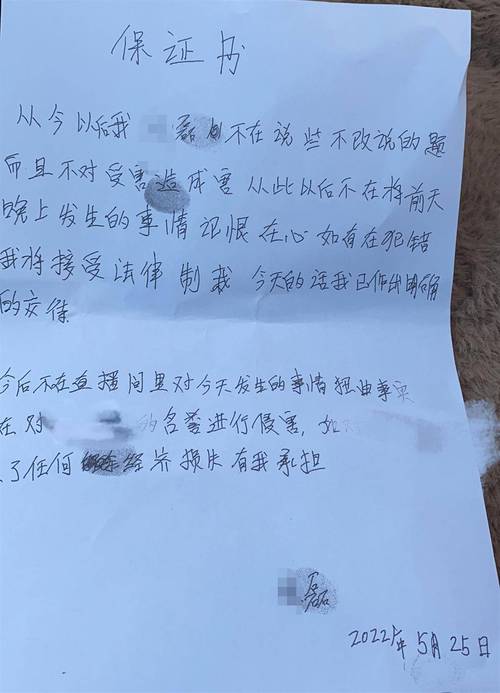 保证书
从今以后我 磊自不在说些不改说的题
而且不对受害造成害 从此以后不在将前天
晚上发生的事情记恨在心如有在犯错
我将接受法律制裁 今天的话我已作出明确
的交待
今后不在直播间里对今天发生的事情扭曲事实
在对 的名誉进行侵害, 如对
了任何 经济损失有我承担
磊
2022年5月25日